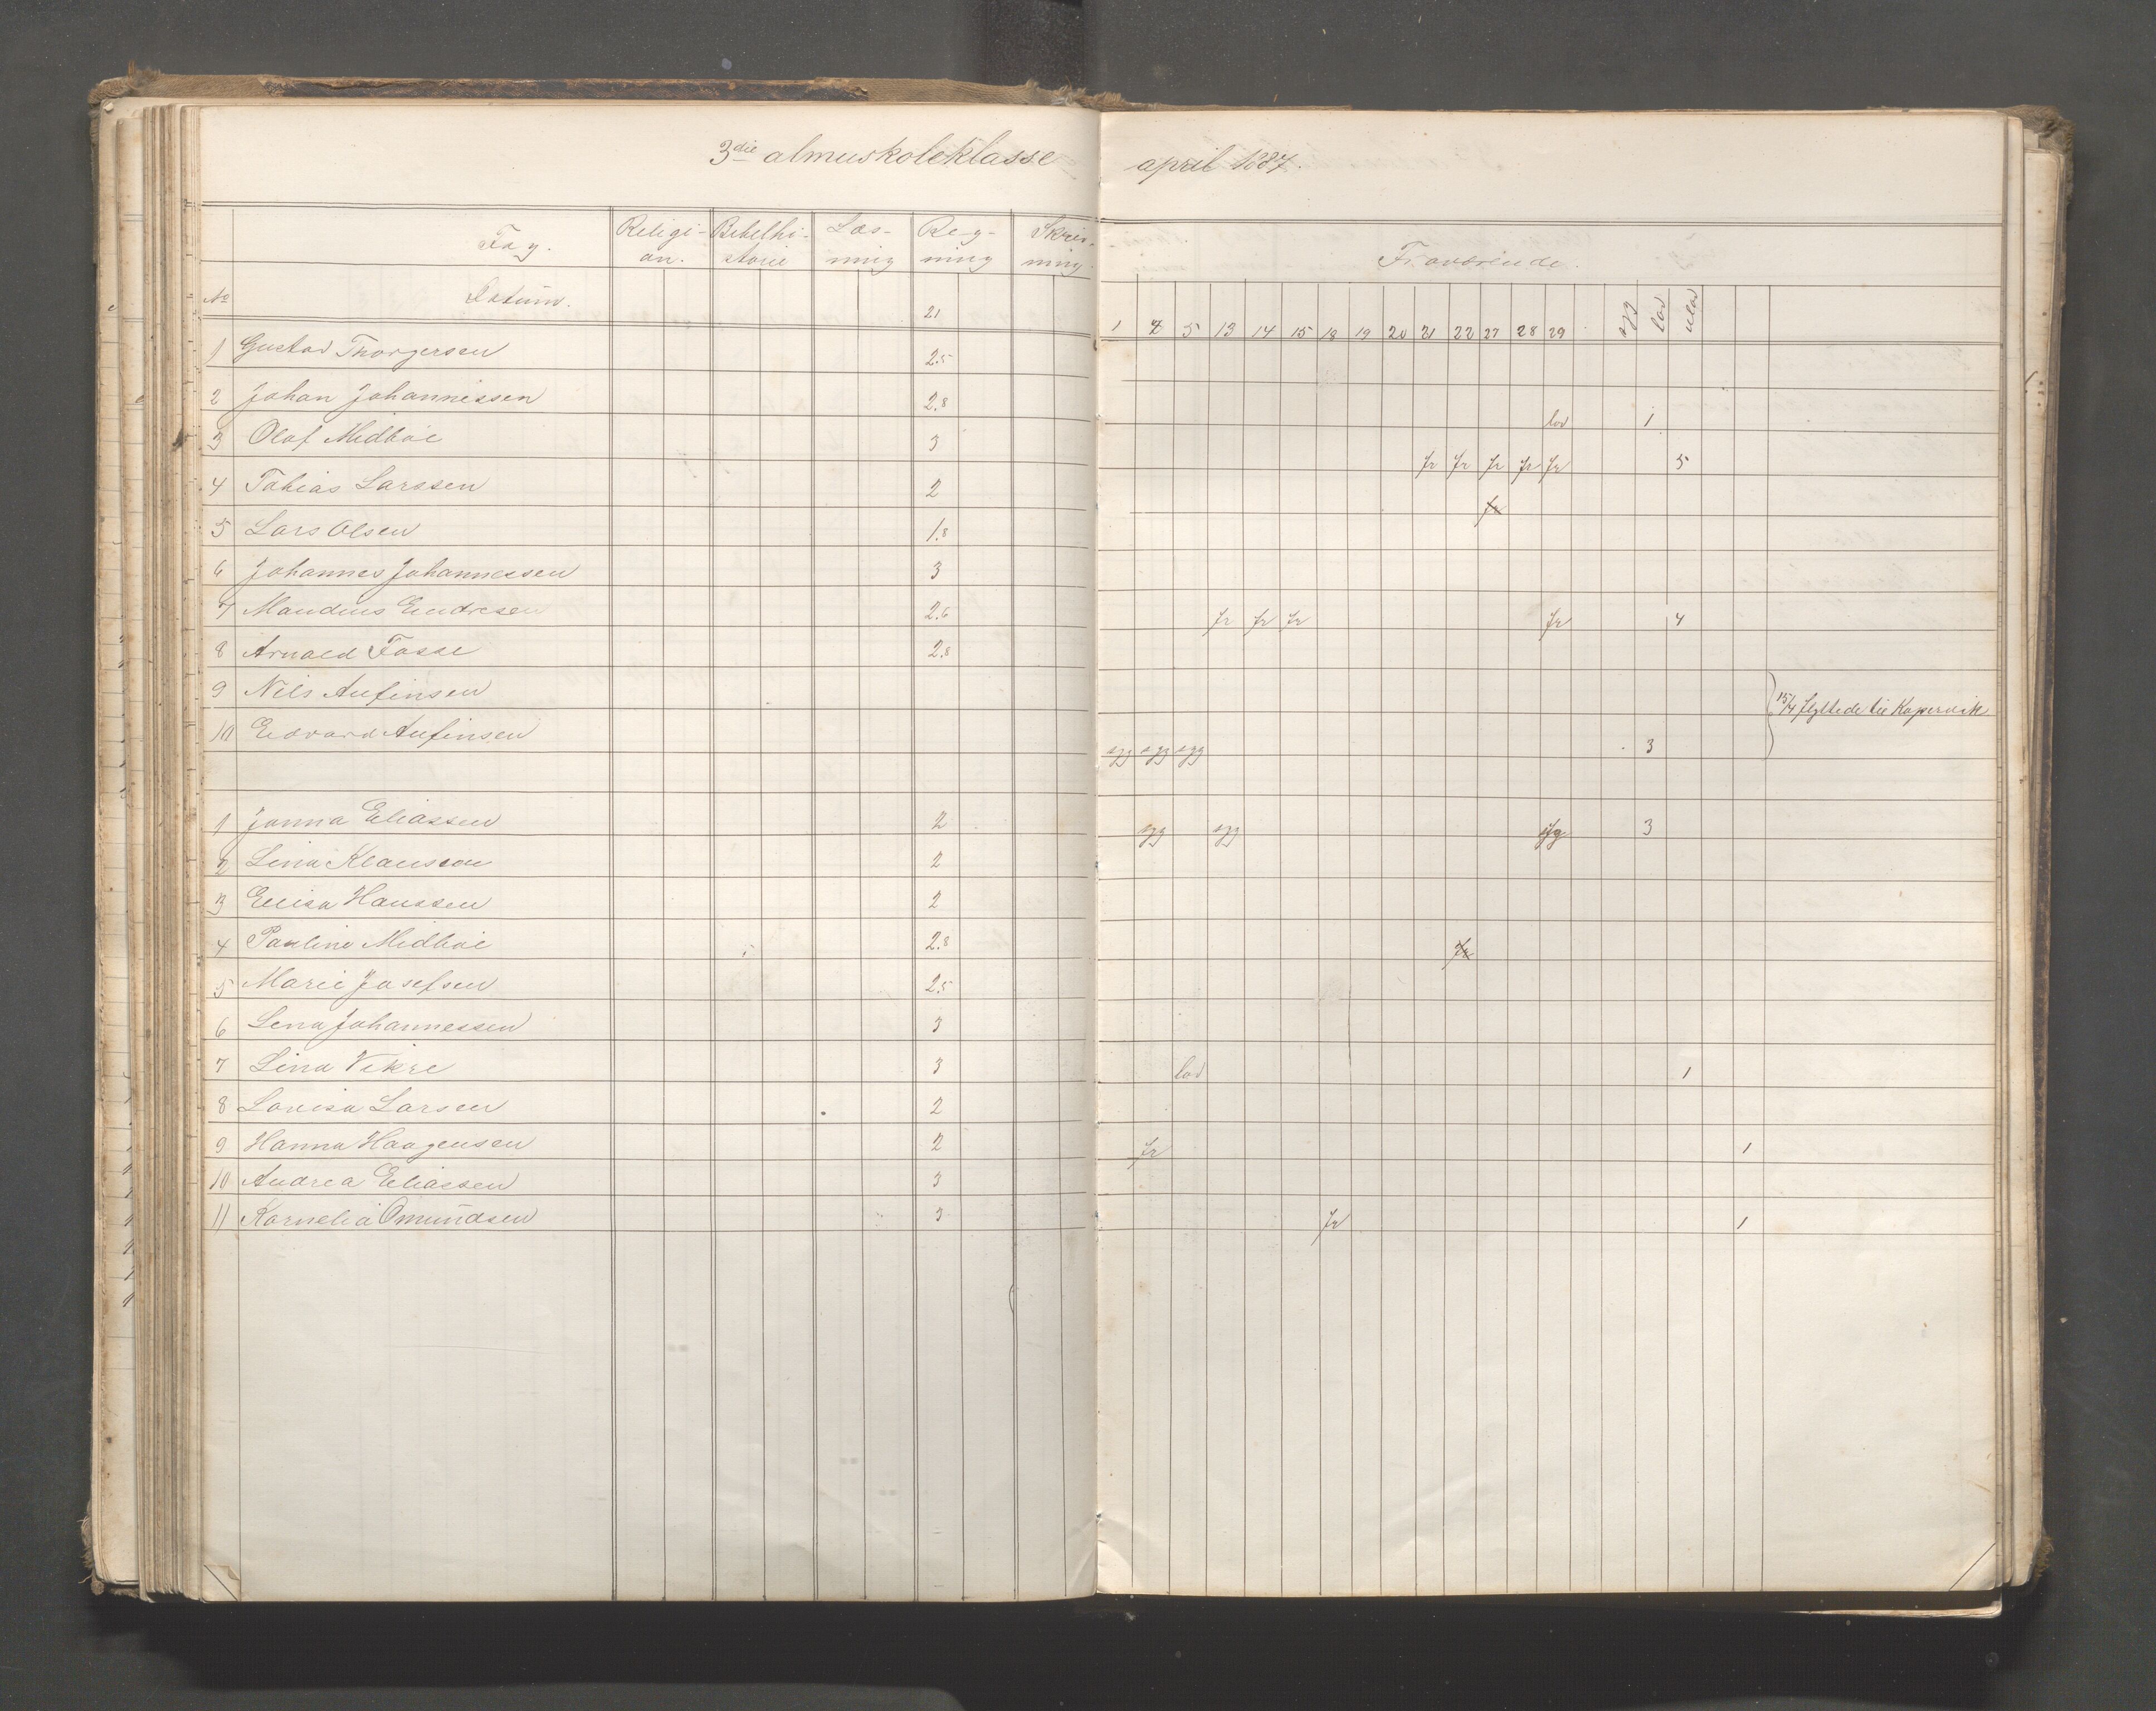 3die almuskoleklasse april 1887.
Fag. Religi- Bibelhi- Læs- Reg- Skriv-
on. storie ning ning ning.
Fraværende.
No Datum. 21 1 2 5 13 14 15 18 19 20 21 22 27 28 29 sgg lov ulov
1 Gustav Thorgersen 2.5
2 Johan Johannessen 2.8 lov 1
3 Olaf Midbøe 3 fr fr fr fr fr 5
4 Tobias Larssen 2 fr
5 Lars Olsen 1.8
6 Johannes Johannessen 3
7 Maudius Endresen 2.6 fr fr fr fr 4
8 Arnold Fosse 2.8
9 Nils Anfinsen 15/4 flyttede til Kopervik
10 Edvard Anfinsen sgg sgg sgg 3
1 Janna Eliassen 2 sgg sgg 3
2 Lina Klausson 2
3 Elisa Hanssen 2
4 Pauline Midbøe 2.8 fr
5 Marie Josefsen 2.5
6 Lena Johannessen 3
7 Lina Vikre 3 lov 1
8 Lovisa Larsen 2
9 Hanna Haagensen 2 fr 1
10 Andrea Eliassen 3
11 Kornelia Omundsen 3 fr 1